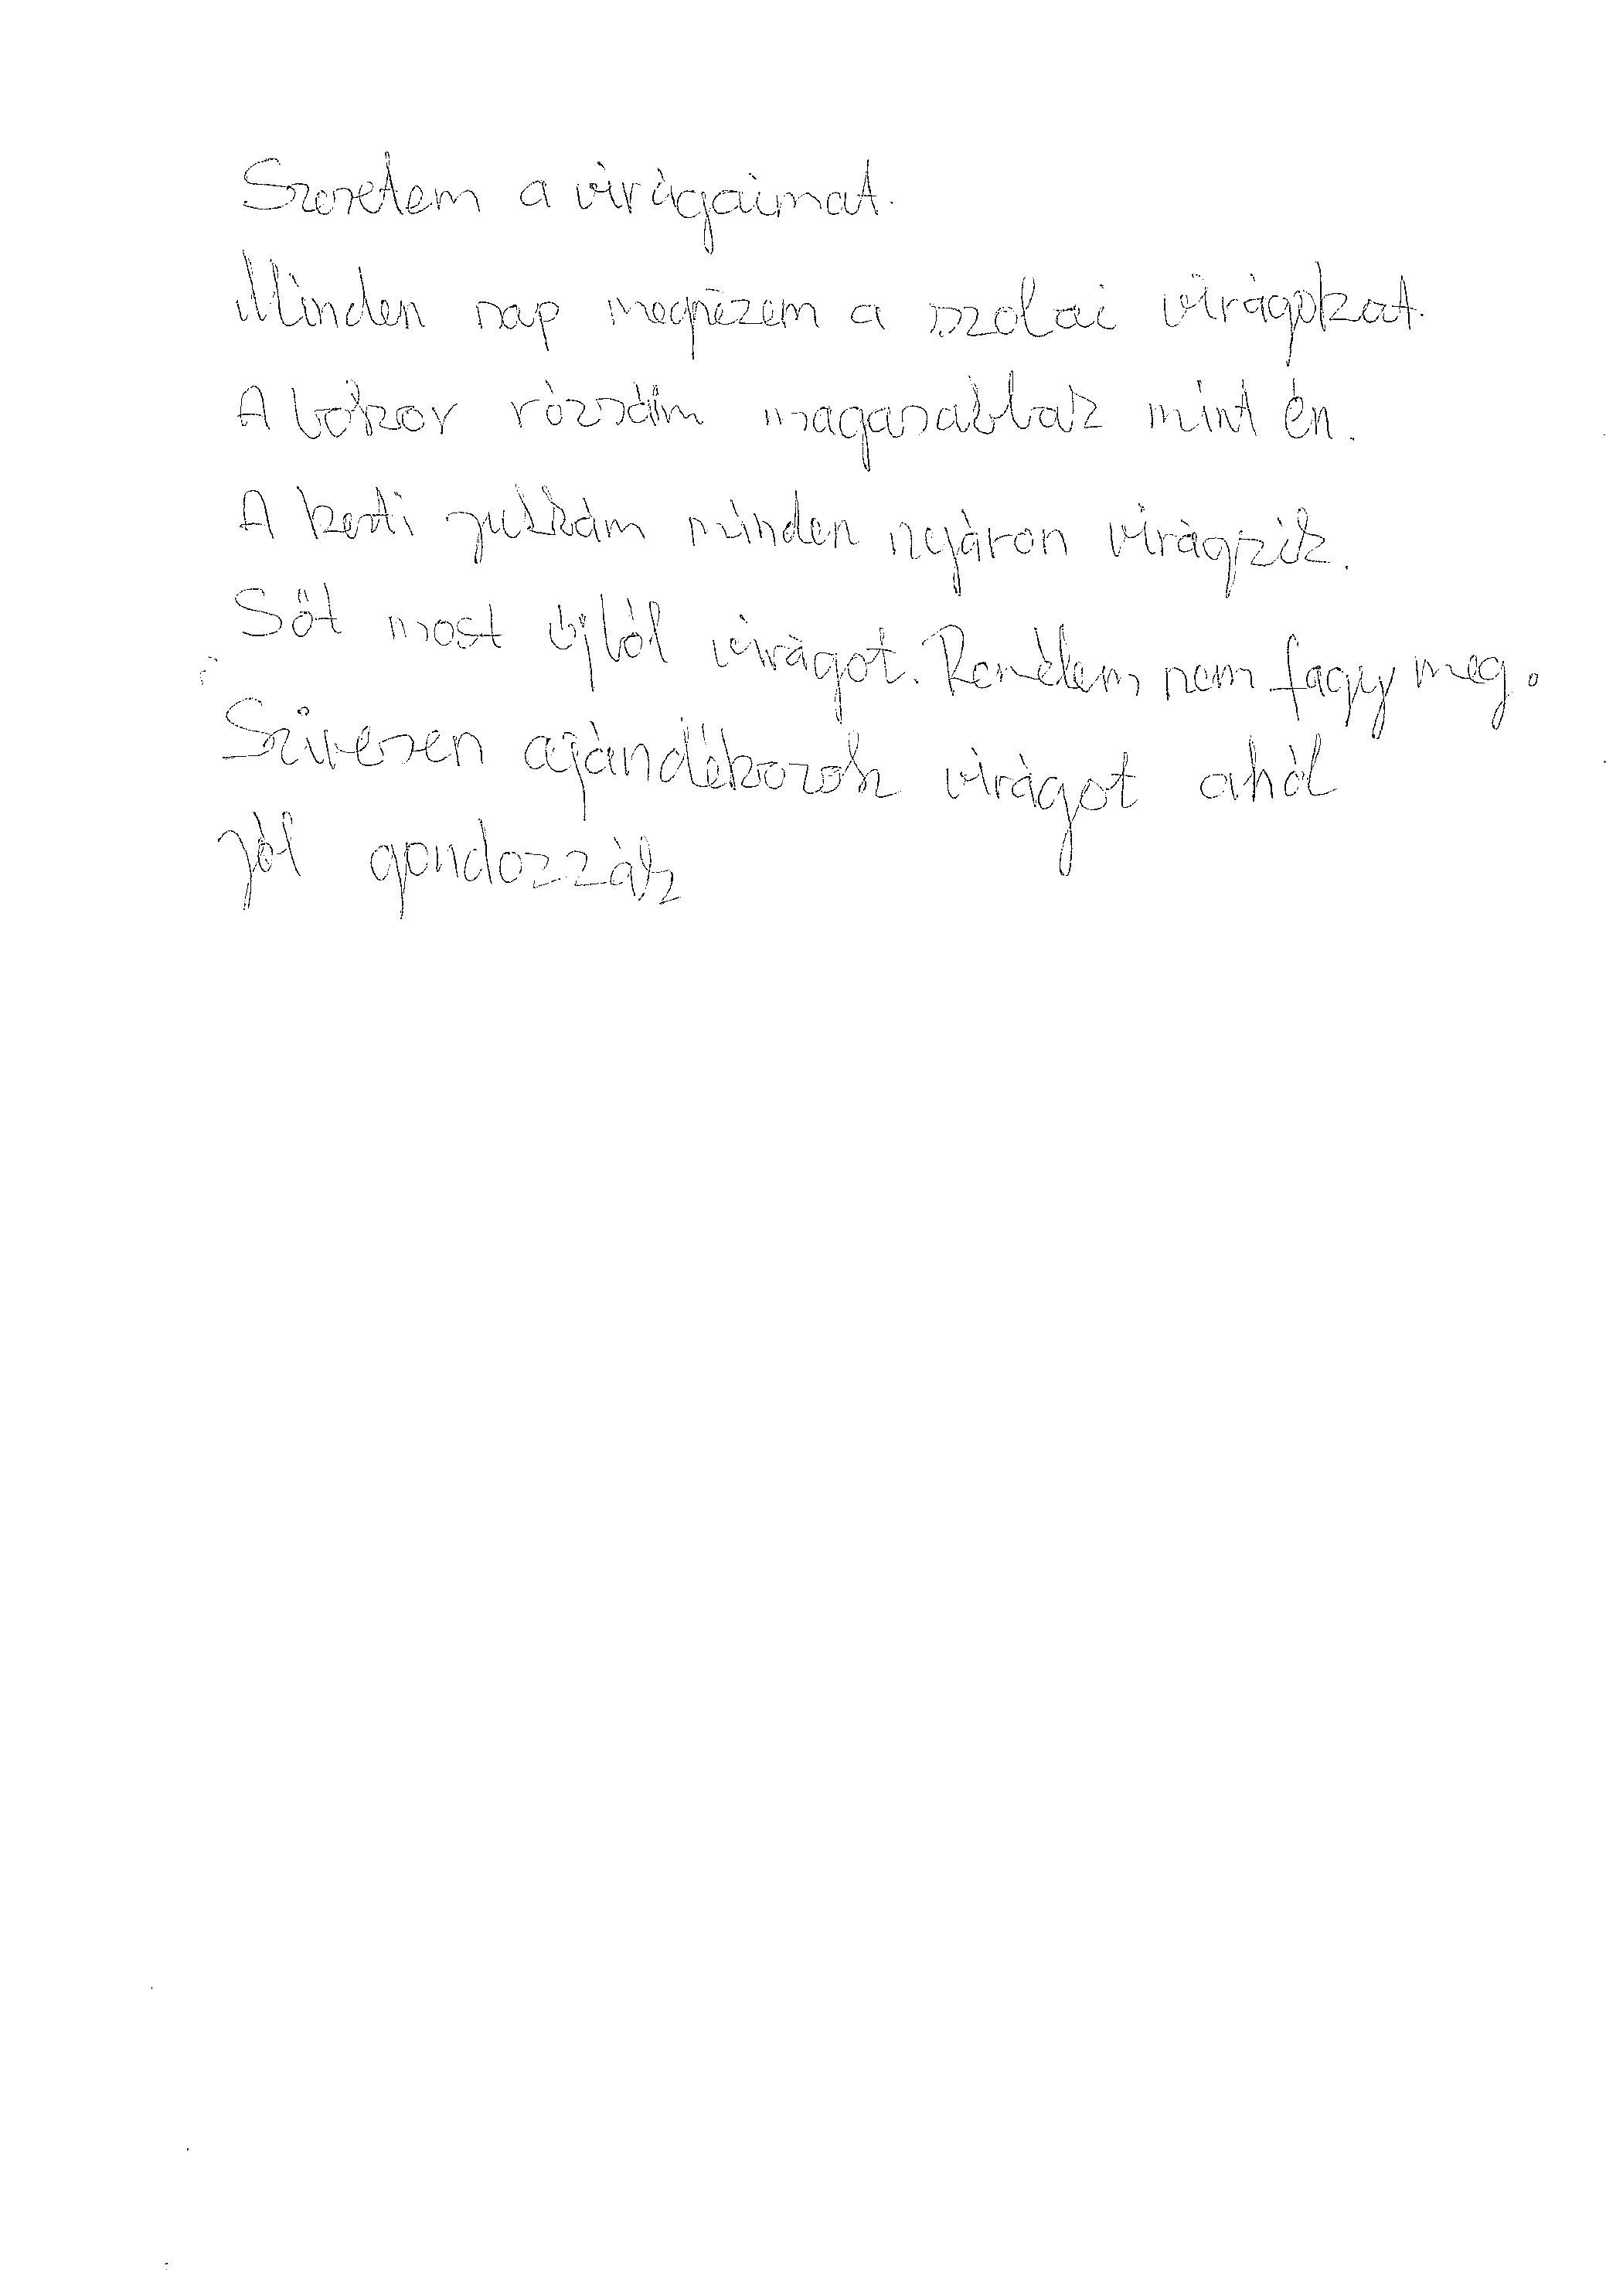 Szeretem a virágaimat.
Minden nap megnézem a szobai virágokat.
A bokor rózsáim magasabbak mint én.
A kerti jukkám minden nyáron virágzik.
Sőt most újból virágot. Remélem nem fagy meg.
Szívesen ajándékozok virágot ahol
jól gondozzák